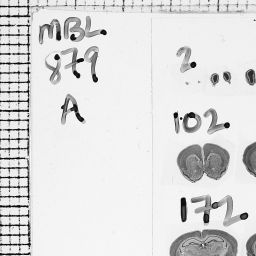 MBL.
879
A
2.
102.
172.